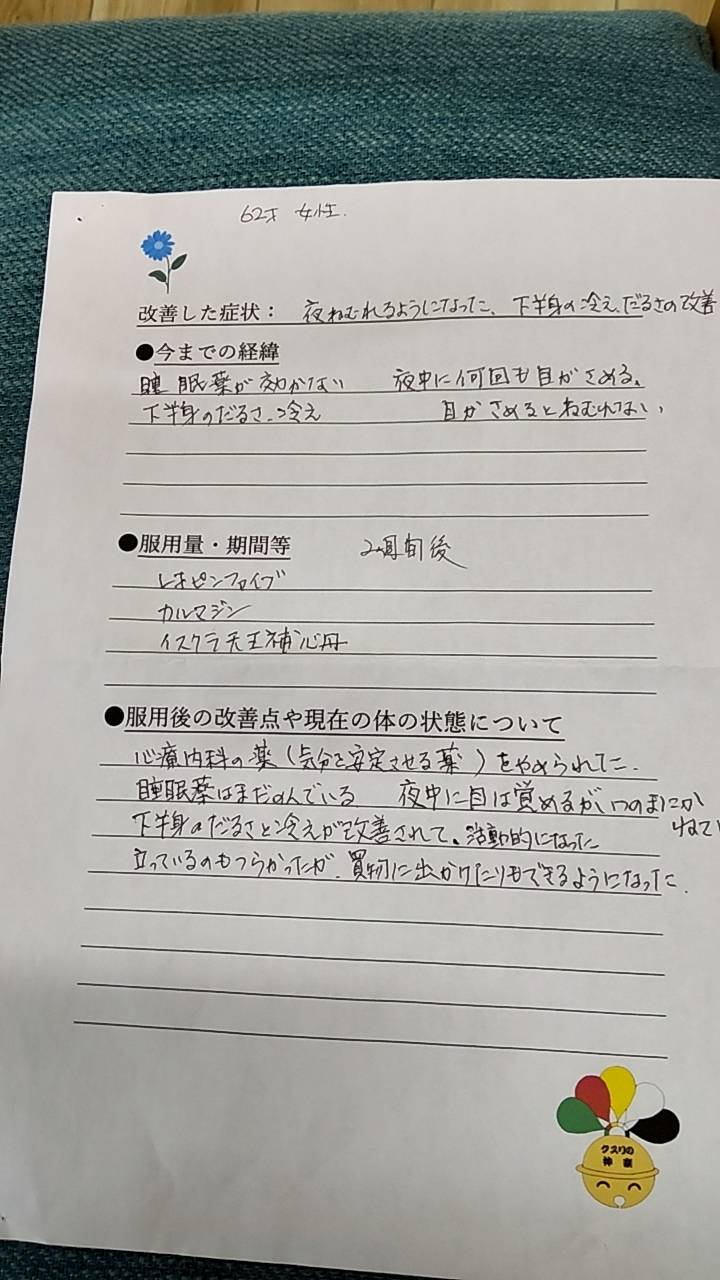 62才 女性.
改善した症状： 夜ねむれるようになった、下半身の冷え、だるさの改善
●今までの経緯
睡眠薬が効かない 夜中に何回も目がさめる、
下半身のだるさ、冷え 目がさめるとねむれない、
●服用量・期間等 2週間後
レオピンファイブ
カルマジン
イスクラ天王補心丹
●服用後の改善点や現在の体の状態について
心療内科の薬（気分を安定させる薬）をやめられた.
睡眠薬はまだのんでいる 夜中に目は覚めるがいつのまにか
ねて
下半身のだるさと冷えが改善されて、活動的になった
立っているのもつらかったが、買物に出かけたりもできるようになった.
クスリの
神